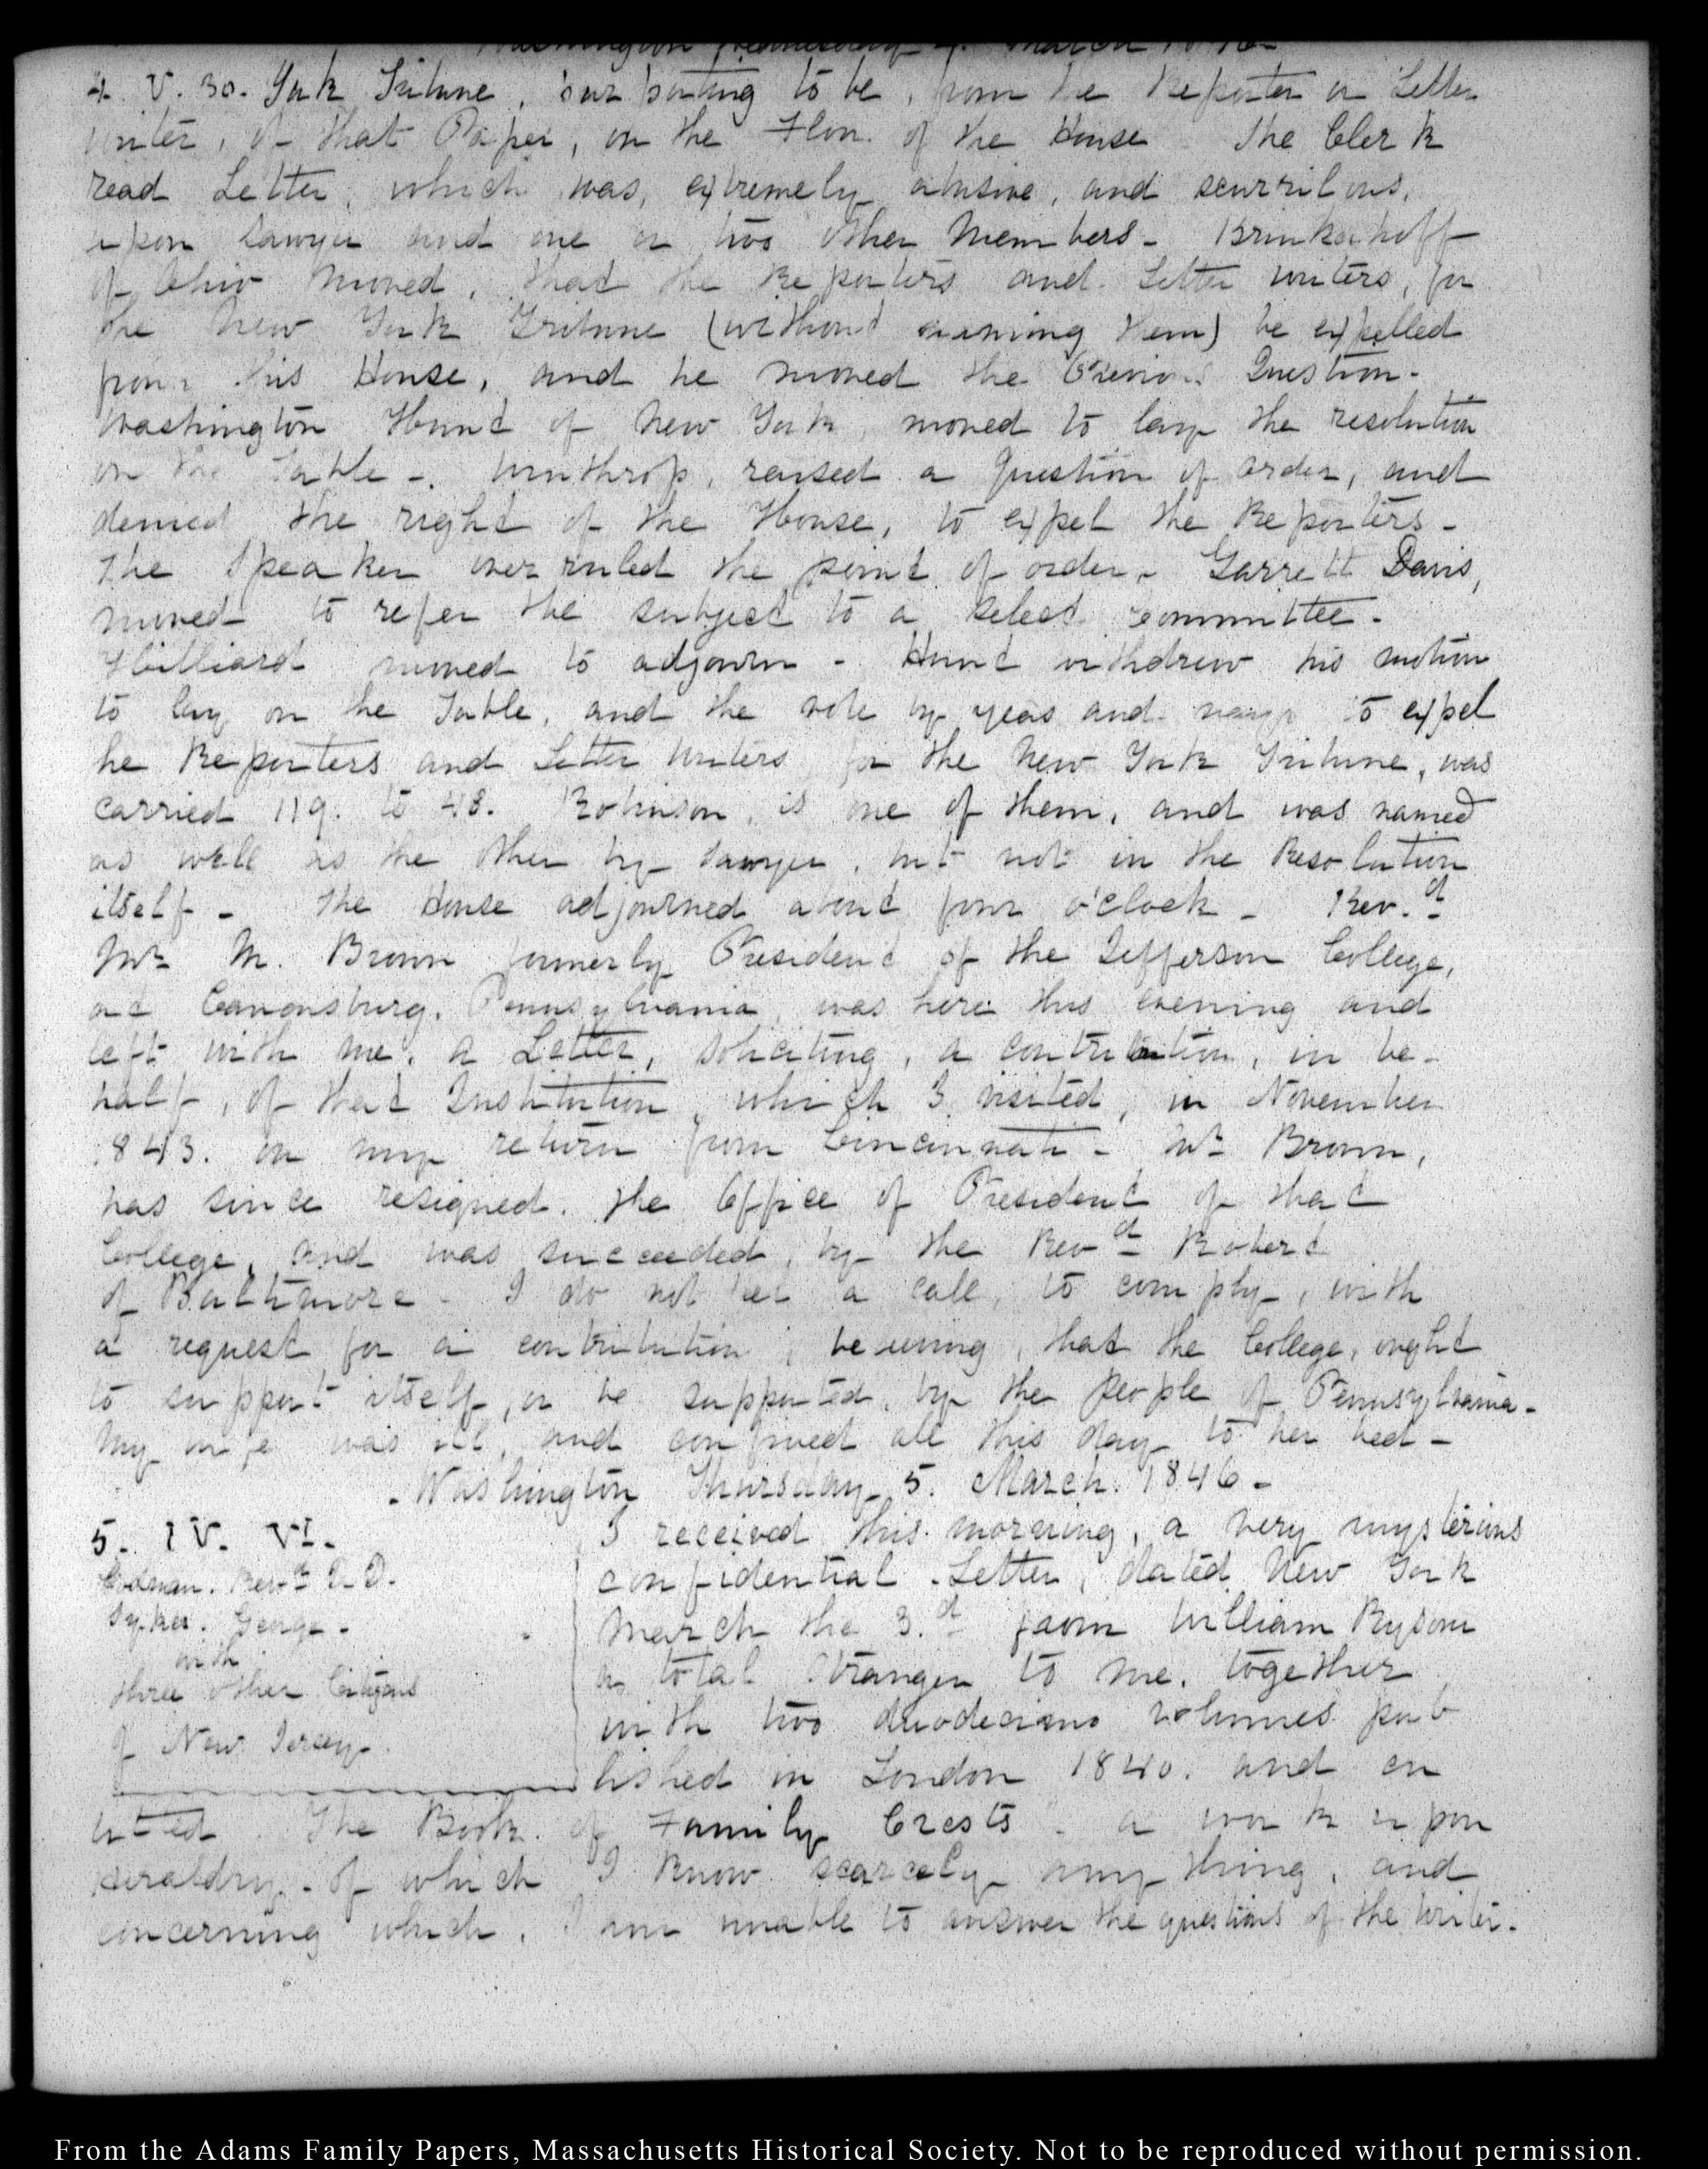 Washington Wednesday 4. March 1846-
4. V. 30. York Tribune, purporting to be, from the Reporter or Letter
writer, of that Paper, on the Floor of the House The Clerk
read Letter, which was, extremely abusive, and scurrilous,
upon Sawyer and one or two other Members- Brinkerhoff
of Ohio moved, that the Reporters and Letter writers, for
the New York Tribune (without naming them) be expelled
from this House, and he moved the Previous Question-
Washington Hunt of New York, moved to lay the resolution
on the Table-. Winthrop, raised a question of order, and
denied the right of the House, to expel the Reporters-
The Speaker overruled the point of order- Garrett Davis,
moved to refer the subject to a select committee-
Hilliard moved to adjourn- Hunt withdrew his motion
to lay on the Table, and the vote by yeas and nays to expel
the Reporters and Letter writers for the New York Tribune, was
carried 119. to 48. Robinson, is one of them, and was named
as well as the other by Sawyer, but not in the Resolution
itself- The House adjourned about four o'clock- Revd.
Mr M. Brown formerly President of the Jefferson College,
at Canonsburg, Pennsylvania, was here this evening and
left with me, a Letter, soliciting, a contribution, in be-
half, of that Institution, which I visited, in November
1843. on my return from Cincinnati- Mr Brown,
has since resigned. the Office of President of that
College, and was succeeded, by the Revd Robert
of Baltimore- I do not feel a call, to comply, with
a request for a contribution, believing, that the College, ought
to support itself, or be supported, by the people of Pennsylvania-
My wife was ill, and confined all this day to her bed-
-Washington Thursday 5. March. 1846-
5. IV. VI.
Codman. Revd D.D.
Sykes. George-
with
three other Citizens
of New Jersey.
I received this morning, a very mysterious
confidential Letter, dated New York
March the 3.d from William Rysom
a total stranger to me, together
with two duodecimo volumes pub
lished in London 1840. and en
titled The Book of Family Crests- a work upon
Heraldry- of which I know scarcely any thing, and
concerning which, I am unable to answer the questions of the writer-
From the Adams Family Papers, Massachusetts Historical Society. Not to be reproduced without permission.